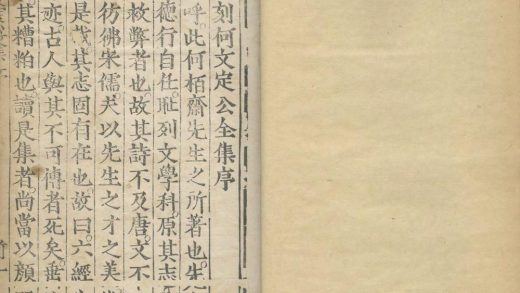 刻何文定公全集序
呼。此何栢齋先生之所著也。先
德行自任。耻列文學科。原其志
救弊者也。故其詩不及唐。文不
彷彿宋儒。夫以先生之才之美
是哉。其志固有在也。故曰。六經
迹。古人與其不可傳者死矣。
其糟粕也。讀是集者。尚當以顔